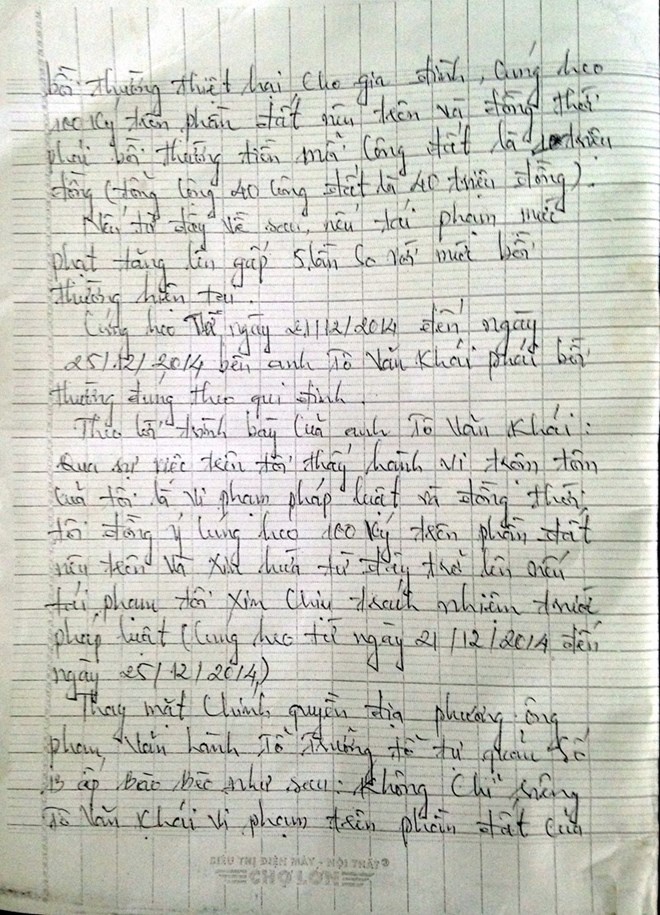 bồi thường thiệt hại cho gia đình, cúng heo
100 ký trên phần đất nêu trên và đồng thời
phải bồi thường tiền mỗi công đất là 1 triệu
đồng (tổng cộng 40 công đất là 40 triệu đồng).
Nếu từ đây về sau, nếu tái phạm mức
phạt tăng lên gấp 5 lần so với mức bồi
thường hiện tại.
Cúng heo Từ ngày 21/12/2014 đến ngày
25/12/2014 bên anh Tô Văn Khái phải bồi
thường đúng theo qui định.
Theo lời trình bày của anh Tô Văn Khái:
Qua sự việc trên tôi thấy hành vi trộm tôm
của tôi là vi phạm pháp luật và đồng thời
tôi đồng ý cúng heo 100 ký trên phần đất
nêu trên và xin hứa từ đây trở lên nếu
tái phạm tôi xin chịu trách nhiệm trước
pháp luật (cúng heo từ ngày 21/12/2014 đến
ngày 25/12/2014,)
Thay mặt chính quyền địa phương ông
phạm Văn hành Tổ Trưởng tổ tự quản số
13 ấp Bào Bèo như sau: không chỉ riêng
Tô Văn Khái vi phạm trên phần đất của
SIÊU THỊ ĐIỆN MÁY - NỘI THẤT
CHỢ LỚN